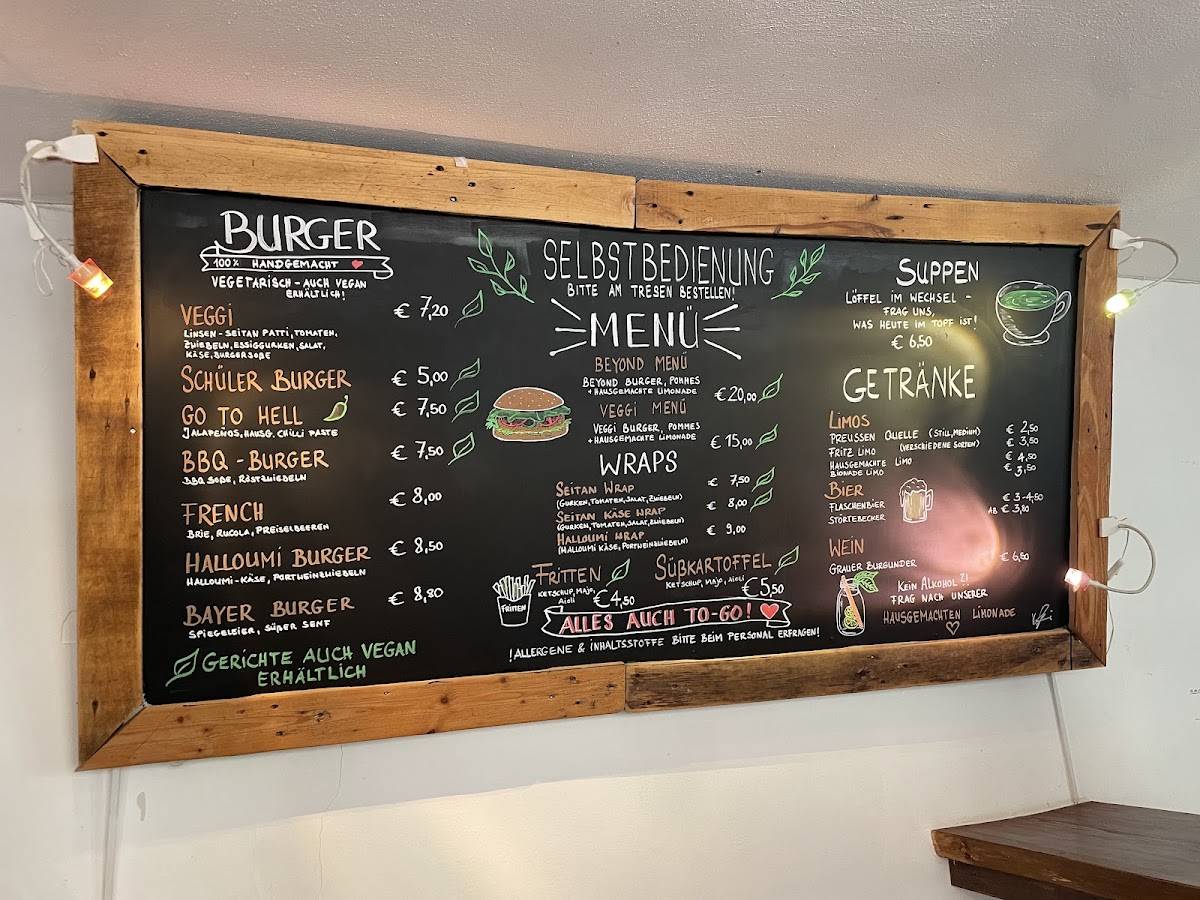 BURGER
100% HANDGEMACHT
VEGETARISCH - AUCH VEGAN
ERHÄLTLICH!
VEGGI € 7,20
LINSEN - SEITAN PATTI, TOMATEN,
ZWIEBELN, ESSIGGURKEN, SALAT,
KÄSE, BURGERSOßE
SCHÜLER BURGER € 5,00
GO TO HELL € 7,50
JALAPEÑOS, HAUSG. CHILLI PASTE
BBQ - BURGER € 7,50
BBQ SOßE, RÖSTZWIEBELN
FRENCH € 8,00
BRIE, RUCOLA, PREISELBEEREN
HALLOUMI BURGER € 8,50
HALLOUMI - KÄSE, PORTWEINZWIEBELN
BAYER BURGER € 8,80
SPIEGELEIER, SÜßER SENF
GERICHTE AUCH VEGAN
ERHÄLTLICH
SELBSTBEDIENUNG
BITTE AM TRESEN BESTELLEN!
MENÜ
BEYOND MENÜ
BEYOND BURGER, POMMES
+ HAUSGEMACHTE LIMONADE € 20,00
VEGGI MENÜ
VEGGI BURGER, POMMES
+ HAUSGEMACHTE LIMONADE € 15,00
WRAPS
SEITAN WRAP € 7,50
(GURKEN, TOMATEN, SALAT, ZWIEBELN)
SEITAN KÄSE WRAP € 8,00
(GURKEN, TOMATEN, SALAT, ZWIEBELN)
HALLOUMI WRAP € 9,00
(HALLOUMI KÄSE, PORTWEINZWIEBELN)
FRITTEN
KETSCHUP, MAJO,
AIOLI € 4,50
FRITTEN
SÜßKARTOFFEL
KETSCHUP, MAJO, AIOLI
€ 5,50
ALLES AUCH TO-GO!
! ALLERGENE & INHALTSSTOFFE BITTE BEIM PERSONAL ERFRAGEN!
SUPPEN
LÖFFEL IM WECHSEL -
FRAG UNS,
WAS HEUTE IM TOPF IST!
€ 6,50
GETRÄNKE
LIMOS
PREUSSEN QUELLE (STILL, MEDIUM) € 2,50
FRITZ LIMO (VERSCHIEDENE SORTEN) € 3,50
HAUSGEMACHTE LIMO € 4,50
BIONADE LIMO € 3,50
BIER
FLASCHENBIER € 3-4,50
STÖRTEBECKER AB € 3,80
WEIN
GRAUER BURGUNDER € 6,50
KEIN ALKOHOL?!
FRAG NACH UNSERER
HAUSGEMACHTEN LIMONADE